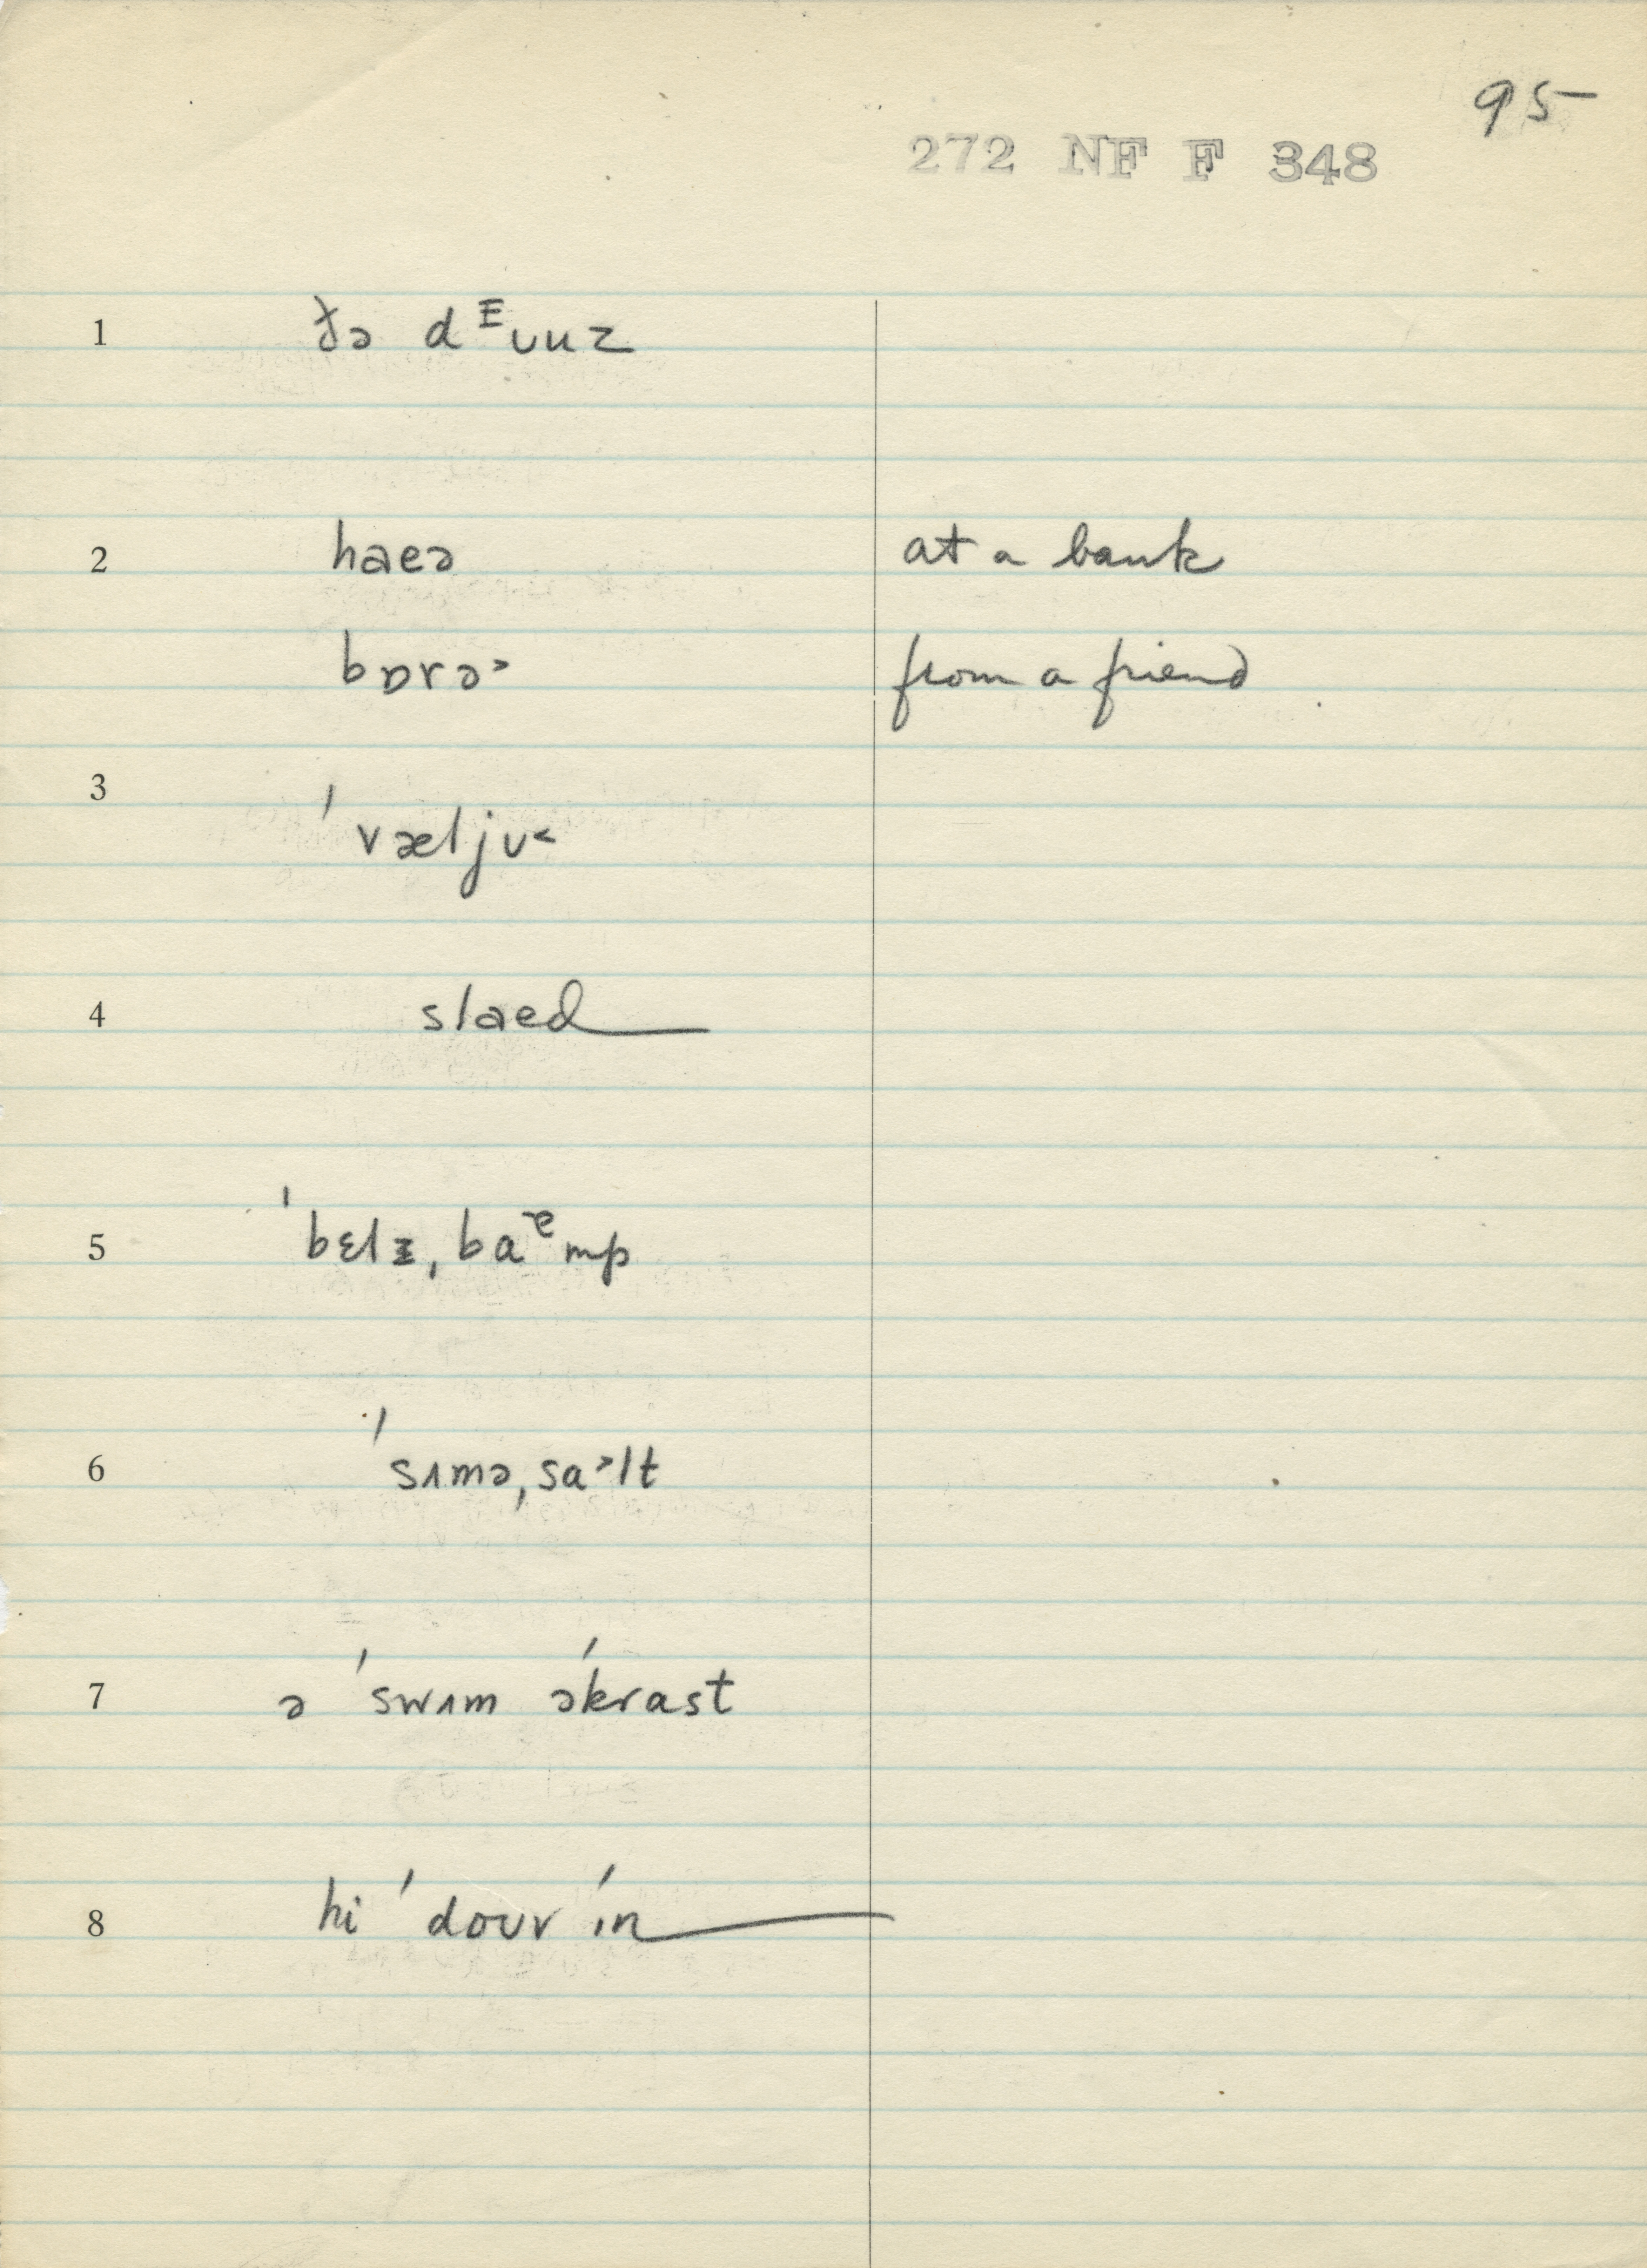 95
272 NF F 348
1 ðə dᴲᴜuz
2 haeə at a bank
bɒrə˃ from a friend
3 ˈvæljᴜ˂
4 slaed
5 ˈbɛlɪ, baᵆmp
6 ˈsɪmə, sa˃lt
7 ə ˈswɪm əˈkrast
8 hi ˈdoᴜv ˈin